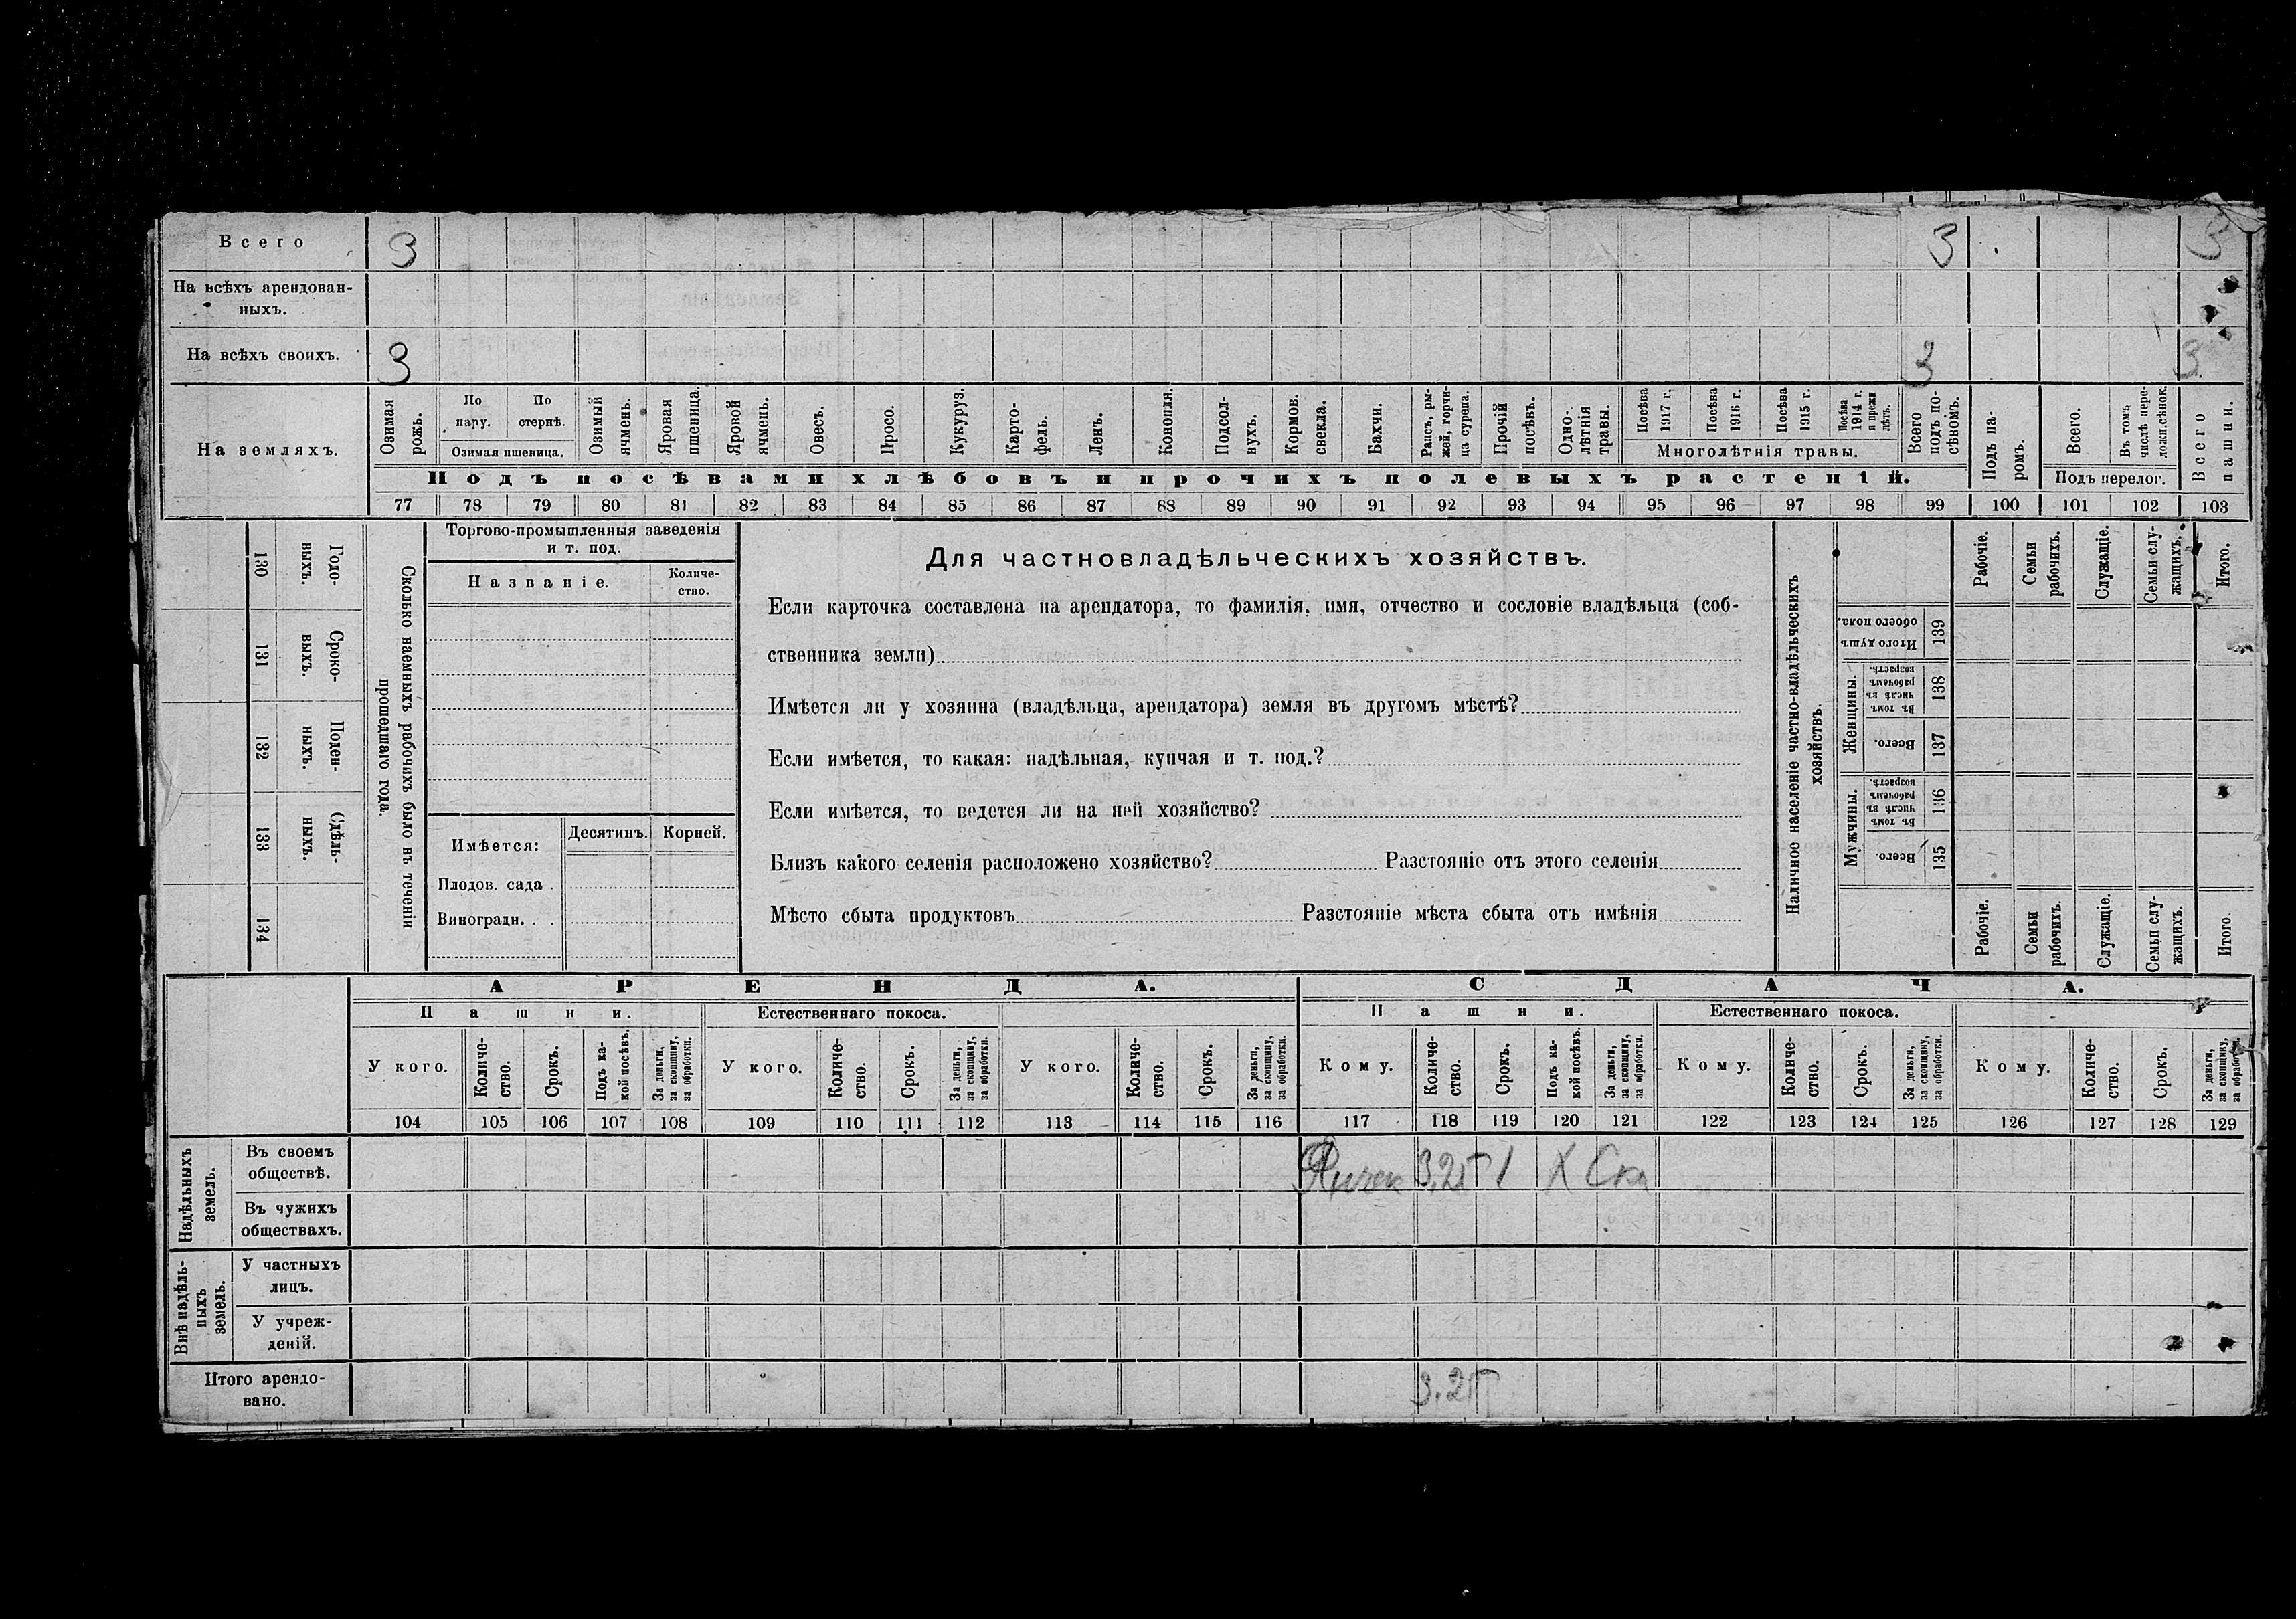 Всего 3 3 3
На всѣхъ арендован-
ныхъ.
На всѣхъ своихъ. 3 3 3
На земляхъ.
Озимая рожь.
По пару.
По стернѣ.
Озимая пшеница.
Озимый ячмень.
Яровая пшеница.
Яровой ячмень.
Овесъ.
Просо.
Кукуруз.
Карто-
фель.
Ленъ.
Конопля.
Подсол-
нухъ.
Кормов.
свекла.
Бахчи.
Рапсъ, ры-
жей, горчи-
ца сурепа.
Прочій
посѣвъ.
Одно-
лѣтнія
травы.
Посѣва
1917 г.
Посѣва
1916 г.
Посѣва
1915 г.
Посѣва
1914 г.
и прежн
лѣтъ.
Многолѣтнія травы.
Всего
подъ по-
сѣвомъ.
Подъ па-
ромъ.
Всего.
Въ томъ
числѣ пере-
ложн.сѣнок.
Подъ перелог.
Всего
пашни.
Подъ посѣвами хлѣбовъ и прочихъ полевыхъ растеній.
77 78 79 80 81 82 83 84 85 86 87 88 89 90 91 92 93 94 95 96 97 98 99 100 101 102 103
Сколько наемныхъ рабочихъ было въ теченіи
прошедшаго года.
Годо-
выхъ.
130
Сроко-
выхъ.
131
Поден-
ныхъ.
132
Сдѣль-
ныхъ.
133
134
Торгово-промышленныя заведенія
и т. под.
Названіе.
Количе-
ство.
Имѣется:
Десятинъ.
Корней.
Плодов. сада .
Виноградн. . .
Для частновладѣльческихъ хозяйствъ.
Если карточка составлена на арендатора, то фамилія, имя, отчество и сословіе владѣльца (соб-
ственника земли)
Имѣется ли у хозяина (владѣльца, арендатора) земля въ другомъ мѣстѣ?
Если имѣется, то какая: надѣльная, купчая и т. под.?
Если имѣется, то ведется ли на ней хозяйство?
Близъ какого селенія расположено хозяйство? Разстояніе отъ этого селенія
Мѣсто сбыта продуктовъ Разстояніе мѣста сбыта отъ имѣнія
Наличное населеніе частно-владѣльческихъ
хозяйствъ.
Рабочіе.
Семьи
рабочихъ.
Служащіе.
Семьи слу-
жащихъ.
Итого.
Итого душъ
обоего пола.
139
Женщины.
Въ томъ
числѣ въ
рабочемъ
возрастѣ.
138
Всего.
137
Мужчины.
Въ томъ
числѣ въ
рабочемъ
возрастѣ.
136
Всего.
135
Рабочіе.
Семьи
рабочихъ.
Служащіе.
Семьи слу-
жащихъ.
Итого
АРЕНДА. СДАЧА.
Пашни. Естественнаго покоса. Пашни. Естественнаго покоса.
У кого.
Количе-
ство.
Срокъ.
Подъ ка-
кой посѣвъ.
За деньги,
за скопщину,
за обработки.
У кого.
Количе-
ство.
Срокъ.
За деньги,
за скопщину,
за обработки.
У кого.
Количе-
ство.
Срокъ.
За деньги,
за скопщину,
за обработки.
Кому.
Количе-
ство.
Срокъ.
Подъ ка-
кой посѣвъ.
За деньги,
за скопщину,
за обработки.
Кому.
Количе-
ство.
Срокъ.
За деньги,
за скопщину,
за обработки.
Кому.
Количе-
ство.
Срокъ.
За деньги,
за скопщину,
за обработки.
104 105 106 107 108 109 110 111 112 113 114 115 116 117 118 119 120 121 122 123 124 125 126 127 128 129
Надѣльныхъ
земель.
Въ своемъ
обществѣ.
3,25 1 Х Ск
Въ чужихъ
обществахъ.
Внѣ надѣль-
ныхъ
земель.
У частныхъ
лицъ.
У учреж-
деній.
Итого арендо-
вано.
3.25